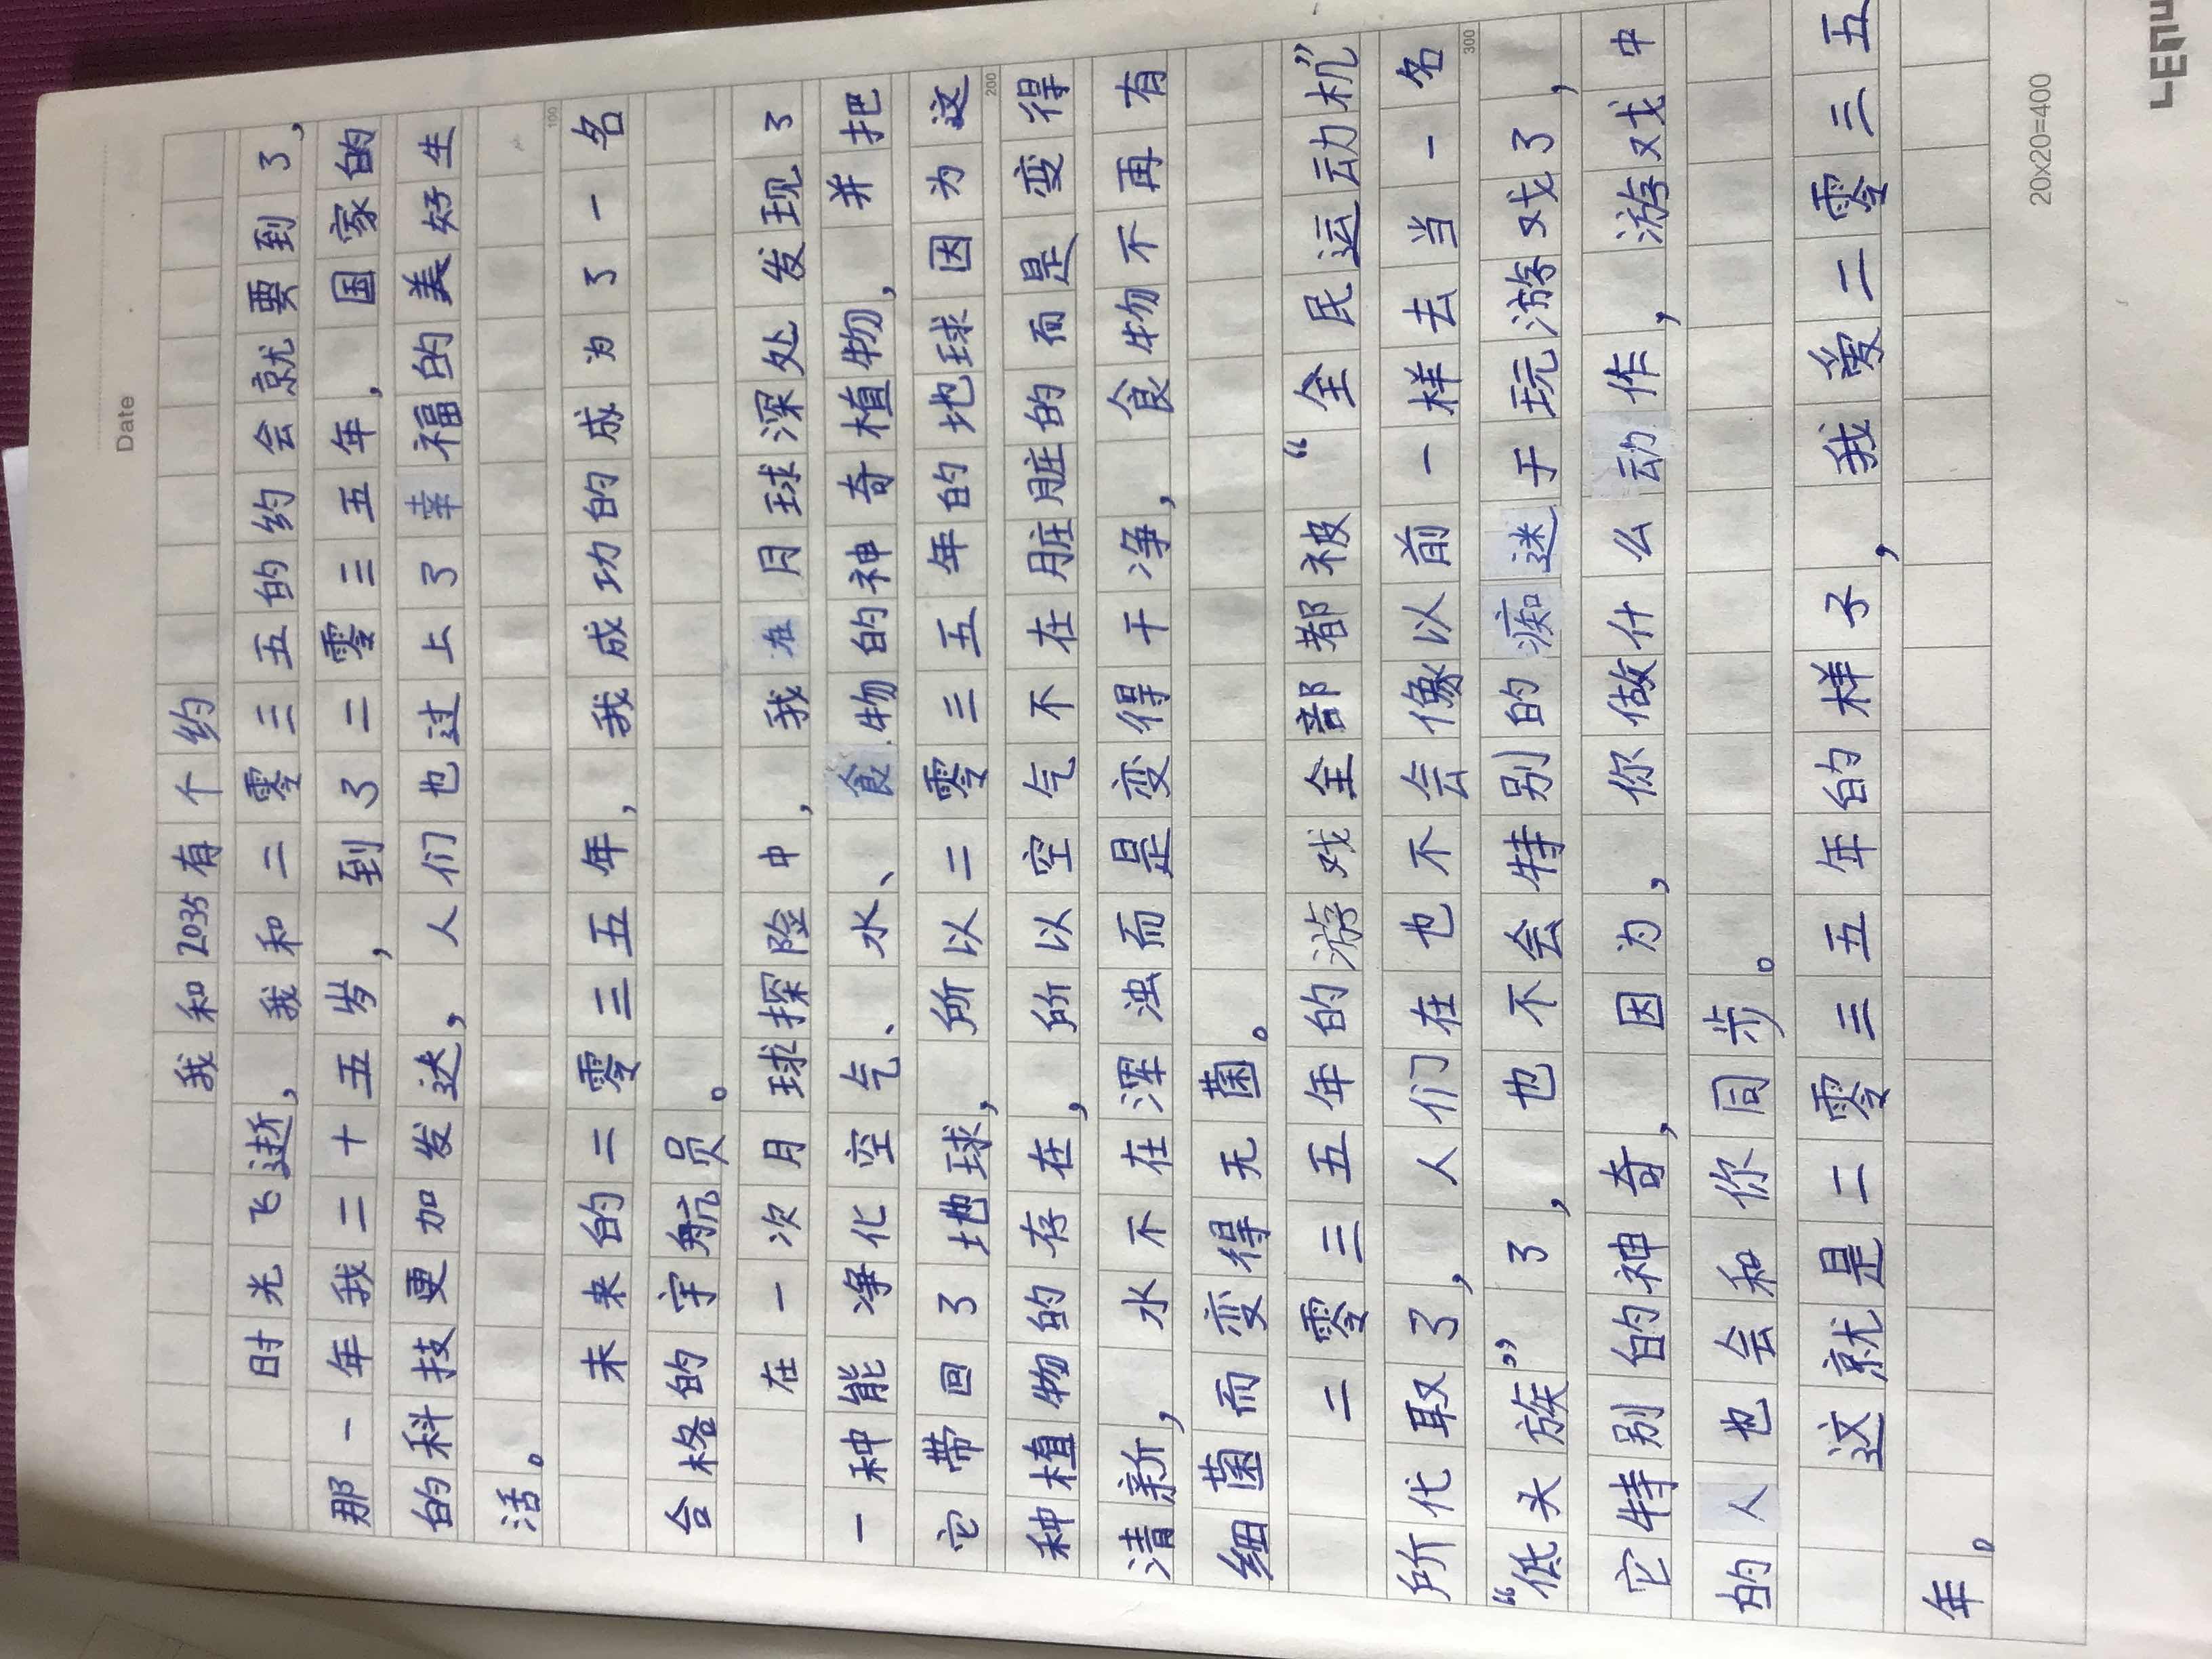 Date
我和2035有个约
时光飞逝，我和二零三五的约会就要到了，
那一年我二十五岁，到了二零三五年，国家的
的科技更加发达，人们也过上了幸福的美好生
活。
100
未来的二零三五年，我成功的成为了一名
合格的宇航员。
在一次月球探险中，我在月球深处发现了
一种能净化空气、水、食物的神奇植物，并把
它带回了地球，所以二零三五年的地球因为这
200
种植物的存在，所以空气不在脏脏的而是变得
清新，水不在浑浊而是变得干净，食物不再有
细菌而变得无菌。
二零三五年的游戏全部都被“全民运动机”
所代取了，人们在也不会像以前一样去当一名
300
“低头族”了，也不会特别的痴迷于玩游戏了，
它特别的神奇，因为，你做什么动作，游戏中
的人也会和你同步。
这就是二零三五年的样子，我爱二零三五
年。
20x20=400